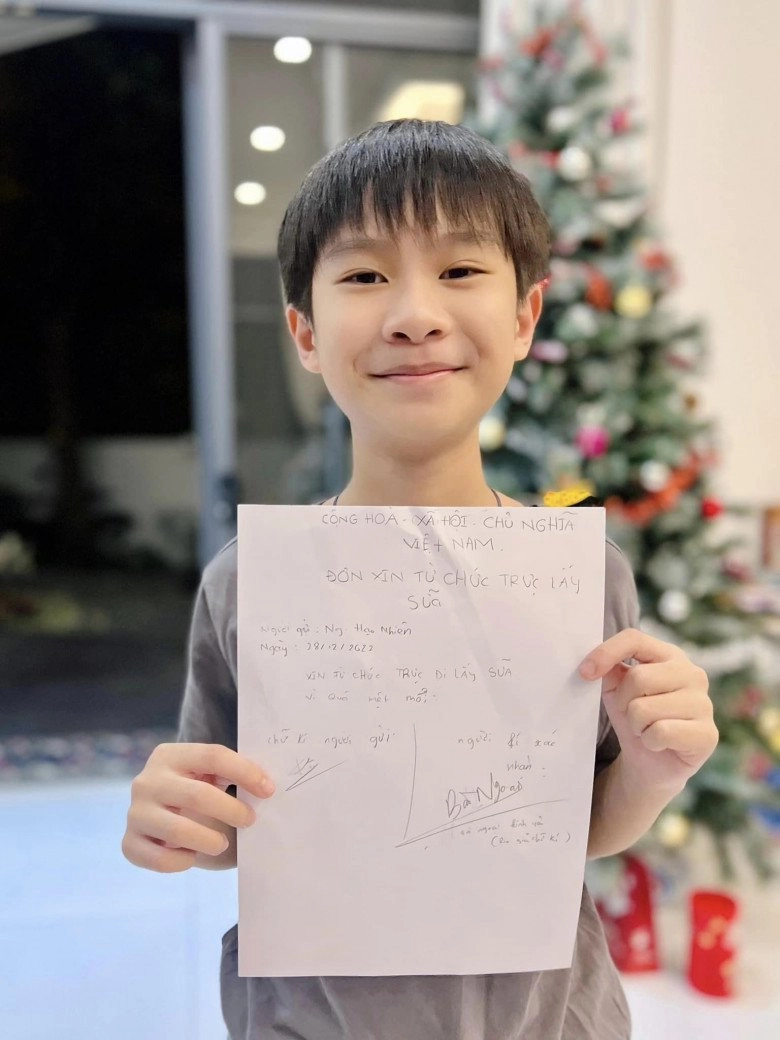 CÔNG HOÀ - XÃ HÔI - CHỦ NGHĨA
VIỆT NAM.
ĐƠN XIN TỪ CHỨC TRỰC LẤY
SỮA
Người gửi : Ng. Hạo Nhiên
Ngày : 28/12/2022
XIN TỪ CHỨC TRỰC ĐI LẤY SỮA
vì quá mệt mỏi
chữ kí người gửi
người kí xác
nhận :
Bà Ngoại
bà ngoại
chữ kí )